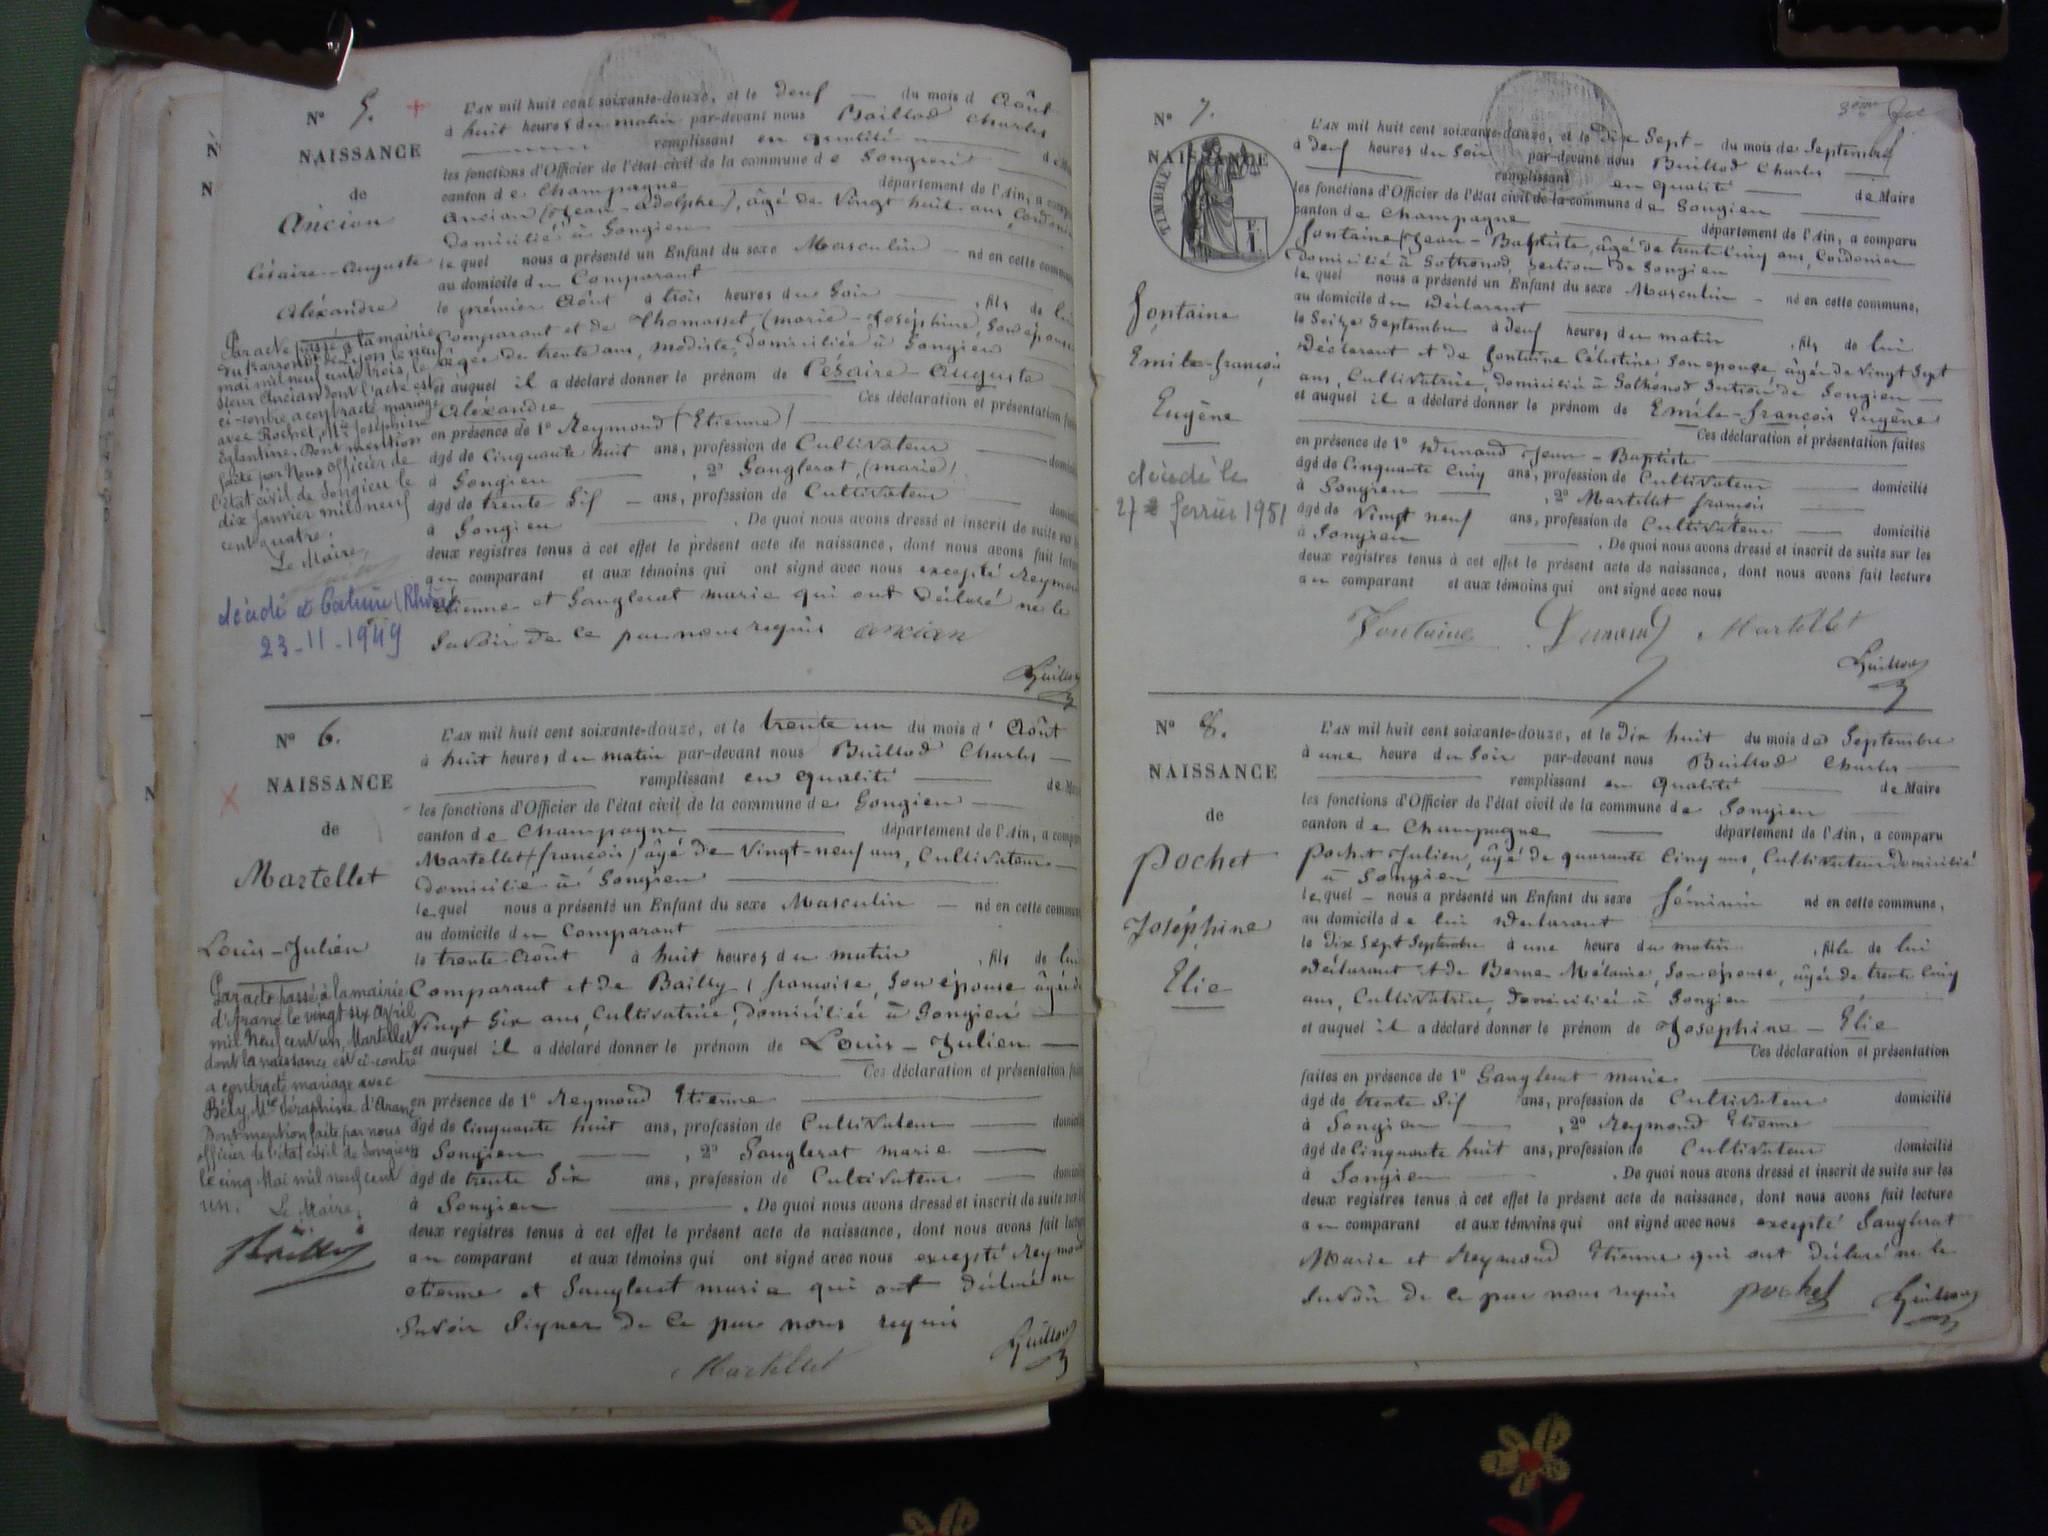 N° 5. +
NAISSANCE
de
Ancian
Césaire-Auguste
Aléxandre
Par acte passé à la mairie
du arrondt de Lyon le neuf
mai mil neuf cent trois, le
sieur Ancian dont l'acte est
ci-contre a contracté mariage
avec Rochet, Mie Joséphine
Eglantine. Dont mention
faite par Nous officier de
l'état civil de Songieu le
dix janvier mil neuf
cent quatre.
Le Maire,
décédé à (Rhône)
23-11-1949
L'AN mil huit cent soixante-douze, et le deuf du mois d Août
à huit heures du matin par-devant nous Buillod Charles
remplissant en qualité
les fonctions d'Officier de l'état civil de la commune de Songieu
canton de Champagne département de l'Ain, a
Ancian (Jean-Adolphe), âgé de Vingt huit ans,
Domicilié à Songieu
le quel nous a présenté un Enfant du sexe Masculin né en cette
au domicile du Comparant
le prémier Août à trois heures du Soir , fils de lui
Comparant et de Thomasset, (marie-Joséphine), Son épouse
âgée de trente ans, modiste, domiciliée à Songieu
et auquel il a déclaré donner le prénom de Césaire-Auguste
Aléxandre Ces déclaration et présentation
en présence de 1° Reymond (Etienne)
âgé de Cinquante huit ans, profession de Cultivateur
à Songieu , 2° Sanglerat (marie)
âgé de trente Sif ans, profession de Cultivateur
à Songieu . De quoi nous avons dressé et inscrit de suite sur
deux registres tenus à cet effet le présent acte de naissance, dont nous avons fait
au comparant et aux témoins qui ont signé avec nous excepté
Etienne et Sanglerat marie qui ont Déclaré ne le
Savoir de ce par nous requis Ancian
Buillod
N° 6.
NAISSANCE
X
de
Martellet
Louis-Julien
Par acte passé à la mairie
d'Aranc le vingt six avril
mil neuf cent un, Martellet
dont la naissance est ci-contre
a contracté mariage avec
Bély Mie Séraphine d'Aranc
Dont mention faite par nous
officier de l'état civil de Songieu
le cinq Mai mil neuf cent
un. Le Maire,
L'AN mil huit cent soixante-douze, et le trente un du mois d' Août
à huit heures du matin par-devant nous Buillod Charles
remplissant en qualité
les fonctions d'Officier de l'état civil de la commune de Songieu
canton de Champagne département de l'Ain, a
Martellet (françois) âgé de Vingt-neuf ans, Cultivateur
Domicilié à Songieu
le quel nous a présenté un Enfant du sexe Masculin né en cette
au domicile du Comparant
le trente Août à huit heures du matin , fils de lui
Comparant et de Bailly (françoise, Son épouse âgée de
Vingt Six ans, Cultivatrice, Domiciliée à Songieu
et auquel il a déclaré donner le prénom de Louis-Julien
Ces déclaration et présentation
en présence de 1° Reymond Etienne
âgé de Cinquante huit ans, profession de Cultivateur
à Songieu , 2° Sanglerat marie
âgé de trente Six ans, profession de Cultivateur
à Songieu . De quoi nous avons dressé et inscrit de suite
deux registres tenus à cet effet le présent acte de naissance, dont nous avons fait
au comparant et aux témoins qui ont signé avec nous excepté
etienne et Sanglerat marie qui ont déclaré ne
Savoir Signer de Ce par nous requis
Martellet Buillod
3ème
N° 7.
NAISSANCE
TIMBRE
Fontaine
Emile-françois
Eugène
décédé le
27 ferrier 1951
L'AN mil huit cent soixante-douze, et le Dix Sept du mois de Septembre
à deuf heures du Soir par-devant nous Buillod Charles
remplissant en qualité de Maire
les fonctions d'Officier de l'état civil de la commune de Songieu
canton de Champagne département de l'Ain, a comparu
fontaine (Jean-Baptiste, âgé de trente Cinq ans, Cordonier
Domicilié à Sothonod, Section de Songieu
le quel nous a présenté un Enfant du sexe Masculin né en cette commune,
au domicile du Déclarant
le Seitze Septembre à deuf heures du matin , fils de lui
Déclarant et de fontaine Célestine Son épouse, âgée de Vingt Sept
ans, Cultivatrice, domiciliée à Sothonod Section de Songieu
et auquel il a déclaré donner le prénom de Emile-françois Eugène
Ces déclaration et présentation faites
en présence de 1° Dumand Jean-Baptiste
âgé de Cinquante Cinq ans, profession de Cultivateur domicilié
à Songieu , 2° Martellet françois
âgé de Vingt neuf ans, profession de Cultivateur domicilié
à Songieu . De quoi nous avons dressé et inscrit de suite sur les
deux registres tenus à cet effet le présent acte de naissance, dont nous avons fait lecture
au comparant et aux témoins qui ont signé avec nous
Fontaine Martellet
Buillod
N° 8.
NAISSANCE
de
Pochet
Joséphine
Elie
L'AN mil huit cent soixante-douze, et le Dix huit du mois de Septembre
à une heure du Soir par-devant nous Buillod Charles
remplissant en Qualité de Maire
les fonctions d'Officier de l'état civil de la commune de Songieu
canton de Champagne département de l'Ain, a comparu
Pochet Julien, âgé de quarante Cinq ans, Cultivateur Domicilié
à Songieu
le quel nous a présenté un Enfant du sexe féminin né en cette commune,
au domicile de lui Déclarant
le Dix Sept Septembre à une heure du matin , fille de lui
Déclarant et de Berne Mélanie, Son épouse, âgée de trente Cinq
ans, Cultivatrice, Domiciliée à Songieu
et auquel il a déclaré donner le prénom de Joséphine-Elie
Ces déclaration et présentation
faites en présence de 1° Sanglerat marie
âgé de trente Sif ans, profession de Cultivateur domicilié
à Songieu , 2° Reymond Etienne
âgé de Cinquante huit ans, profession de Cultivateur domicilié
à Songieu . De quoi nous avons dressé et inscrit de suite sur les
deux registres tenus à cet effet le présent acte de naissance, dont nous avons fait lecture
au comparant et aux témoins qui ont signé avec nous excepté Sanglerat
Marie et Reymond Etienne qui ont déclaré ne le
Savoir de Ce par nous requis Pochet Buillod